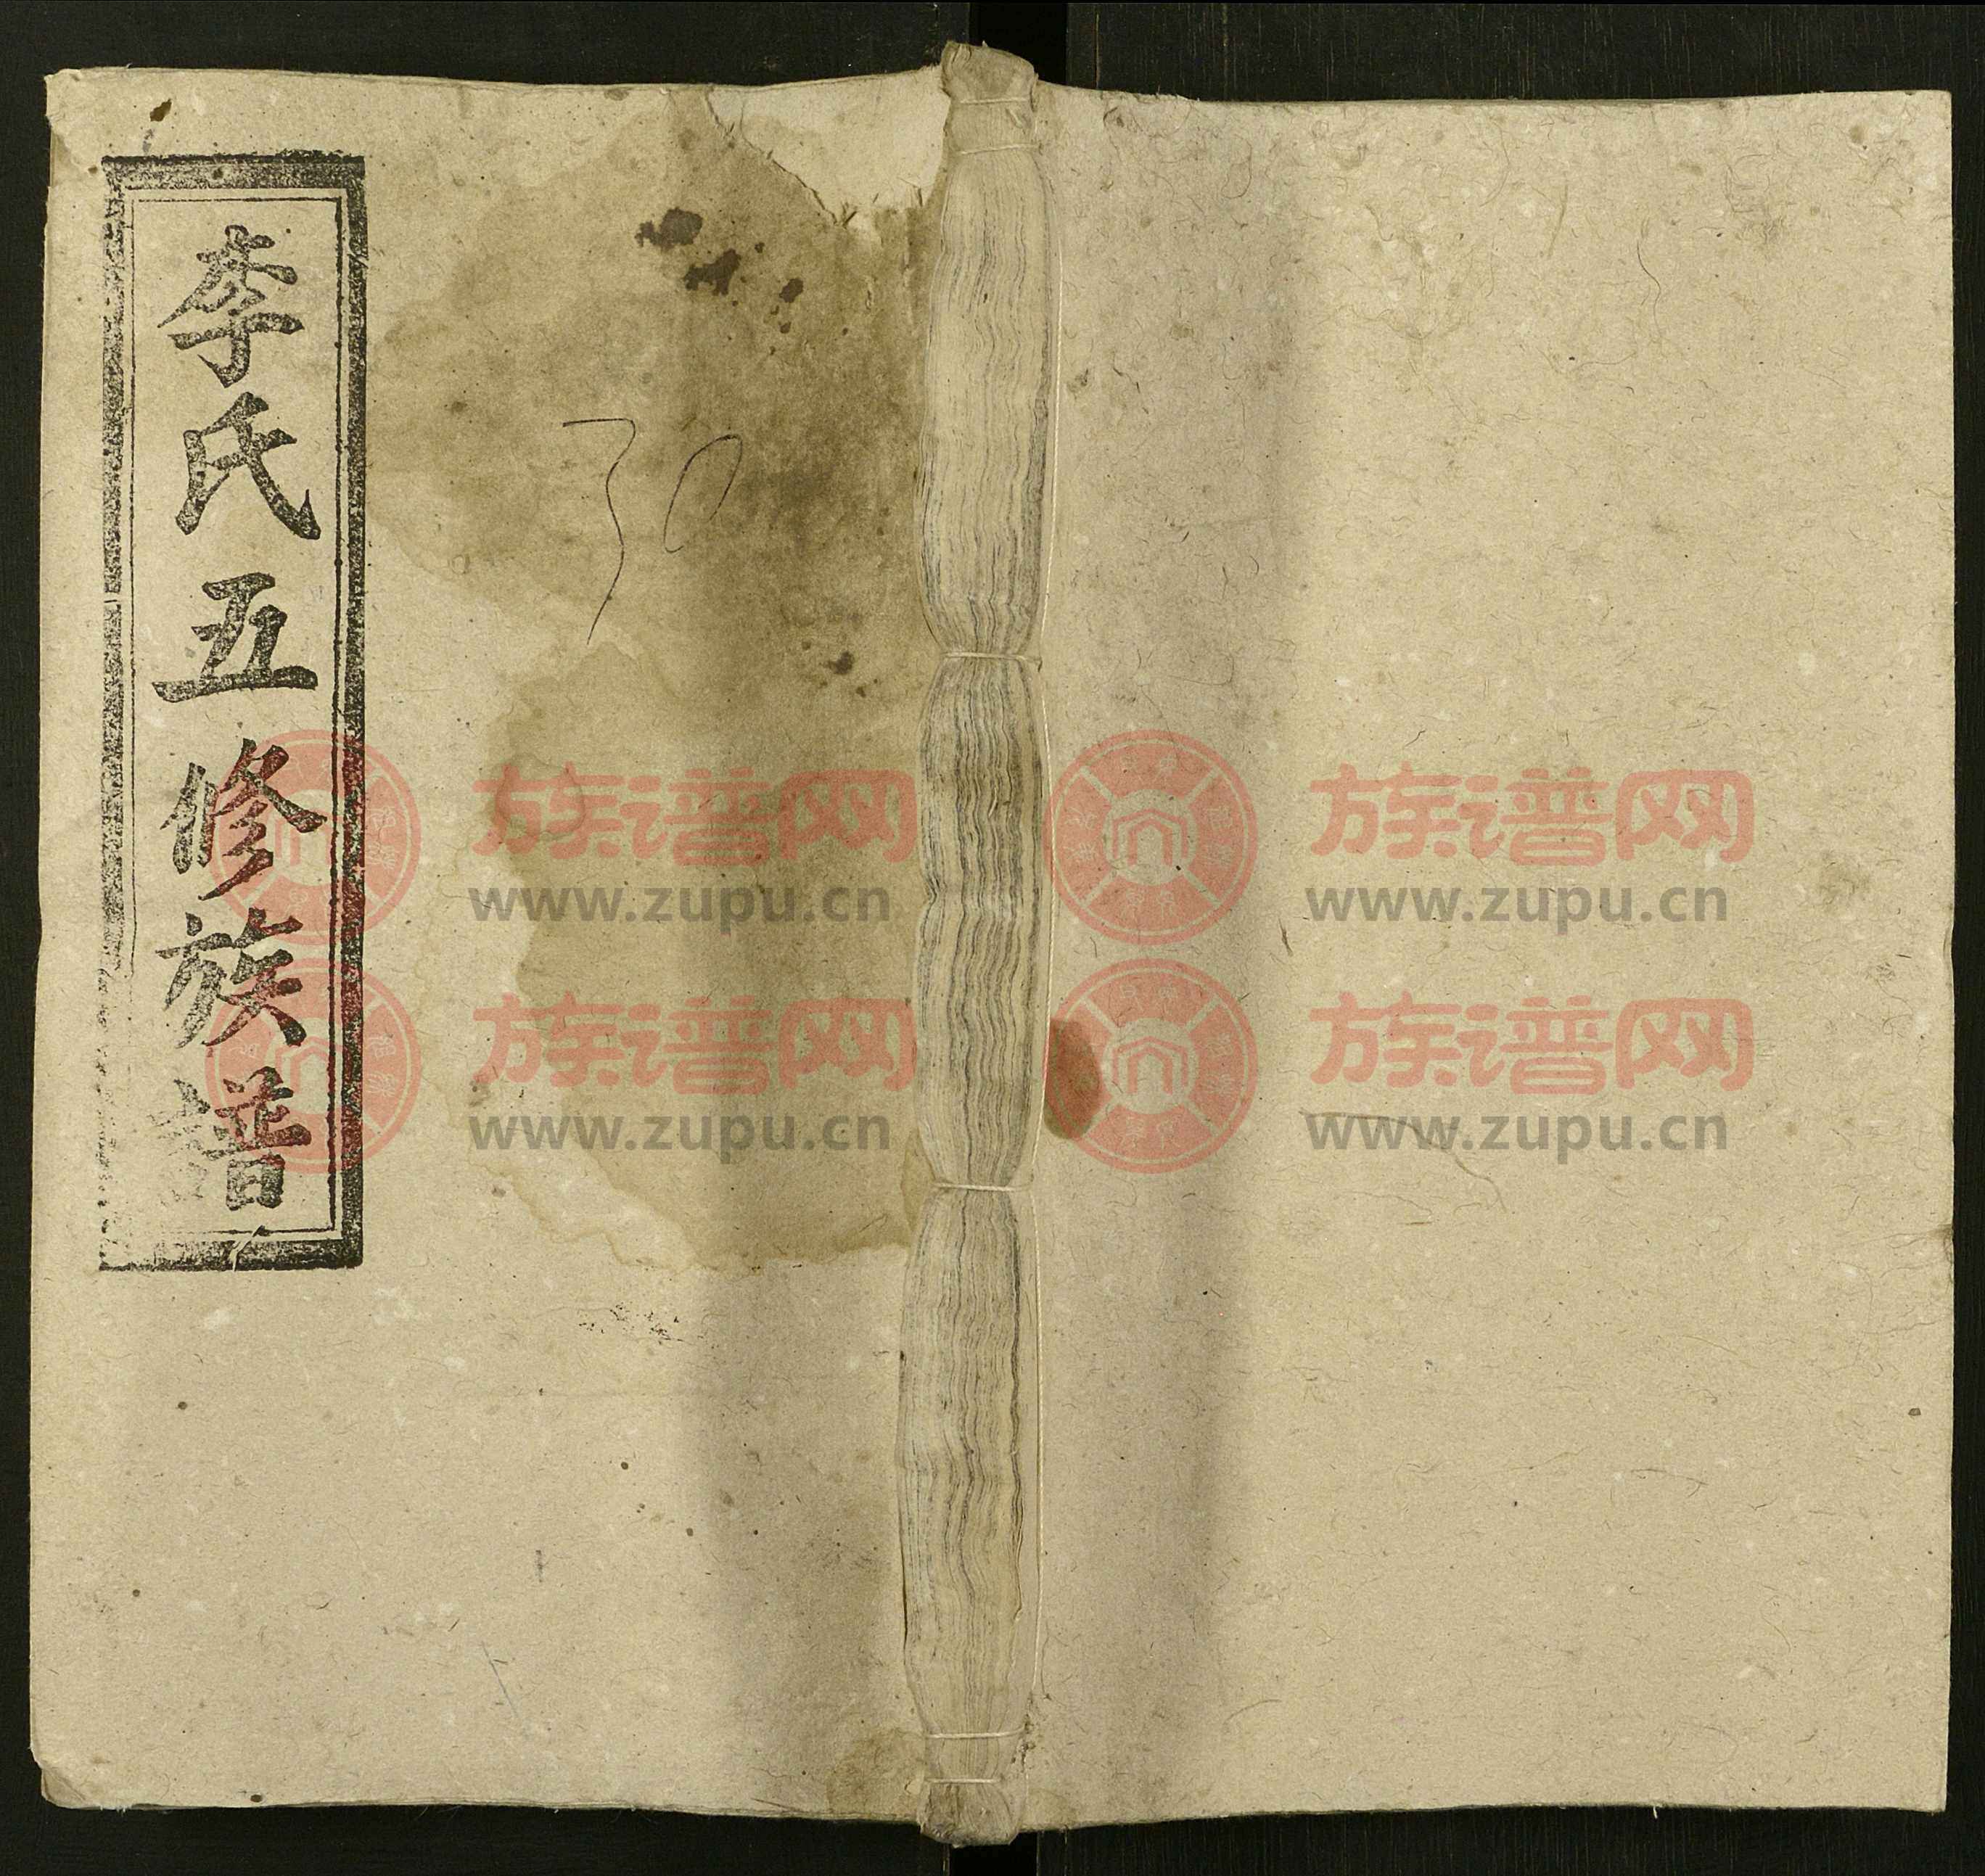 李氏五修族譜
30
族谱网
www.zupu.cn
族谱网
www.zupu.cn
族谱网
www.zupu.cn
族谱网
www.zupu.cn